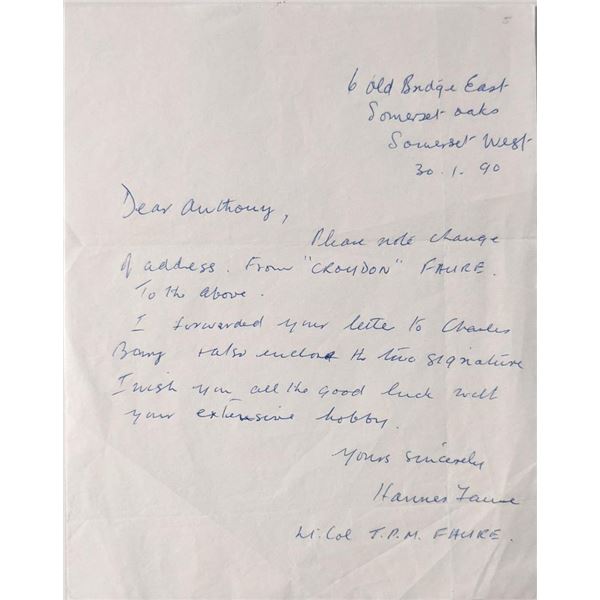 6 Old Bridge East
Somerset oaks
Somerset West
30.1.90
Dear Anthony,
Please note change
of address. From "CROYDON" FAURE.
To the above.
I forwarded your lette to Charles
& also enclose the two signature
I wish you all the good luck with
your extensive hobby.
Yours sincerely
Hannes Faure
Lt. Col T.P.M. FAURE.